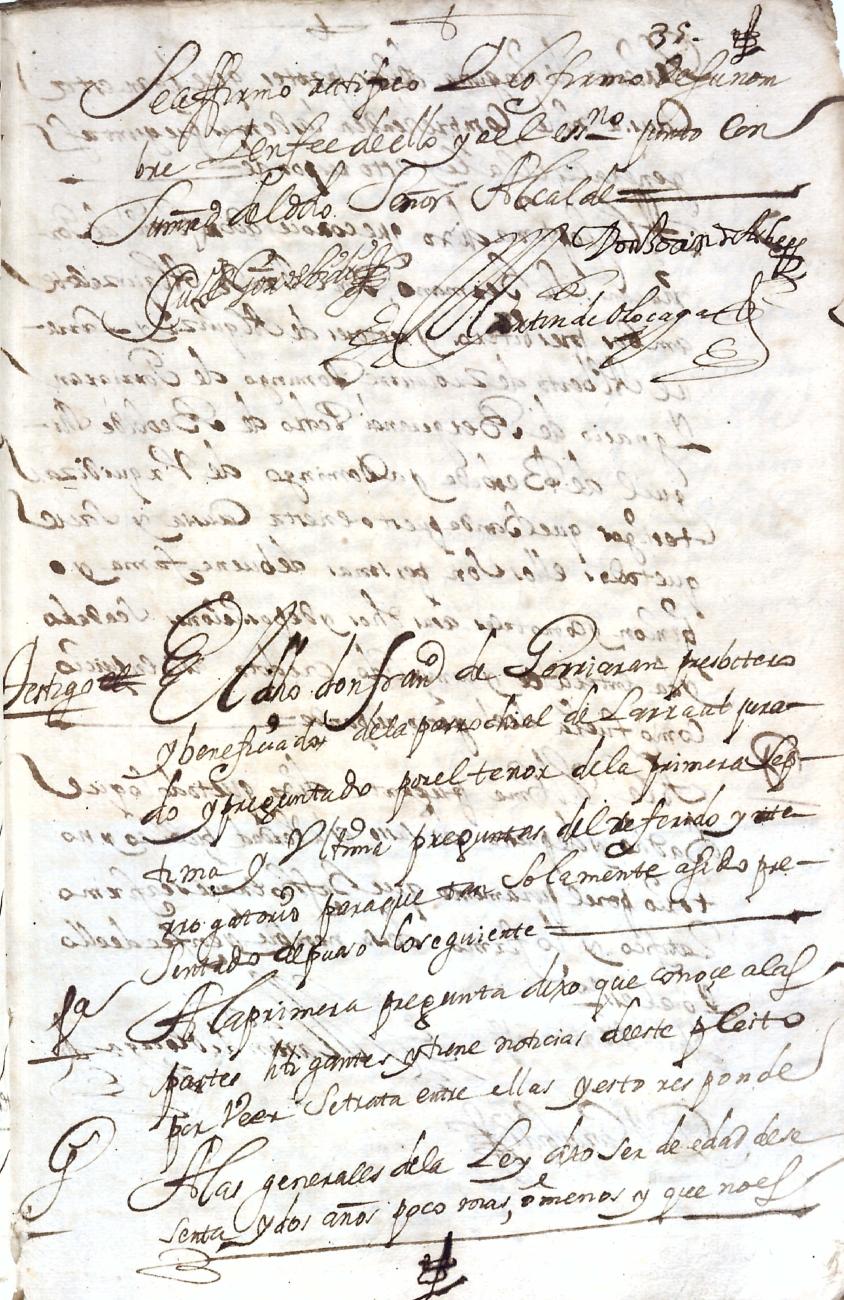 35.
Se affirmo ratifico Y lo firmo de su nom
bre Y enfee dello yo el ess.no junto Con
Su mrd del dho. Señor Alcalde
Martin de Olocaga
Testigo
El dho don fran.co de Gorriaran presbitero
y beneficiado de la parrochial de Larraul jura
do y preguntado por el tenor de la primera sep
tima Y Vltima preguntas del referido ynte
rrogatorio para que tan Solamente a sido pre
sentado depuso lo seguiente
1a A la primera pregunta dixo que conoçe a las
partes litigantes y tiene noticias deste pleito
por Veer Se trata entre ellas y esto responde
G A las generales de la Ley dixo ser de edad de se
senta y dos años poco mas, o menos y que no es